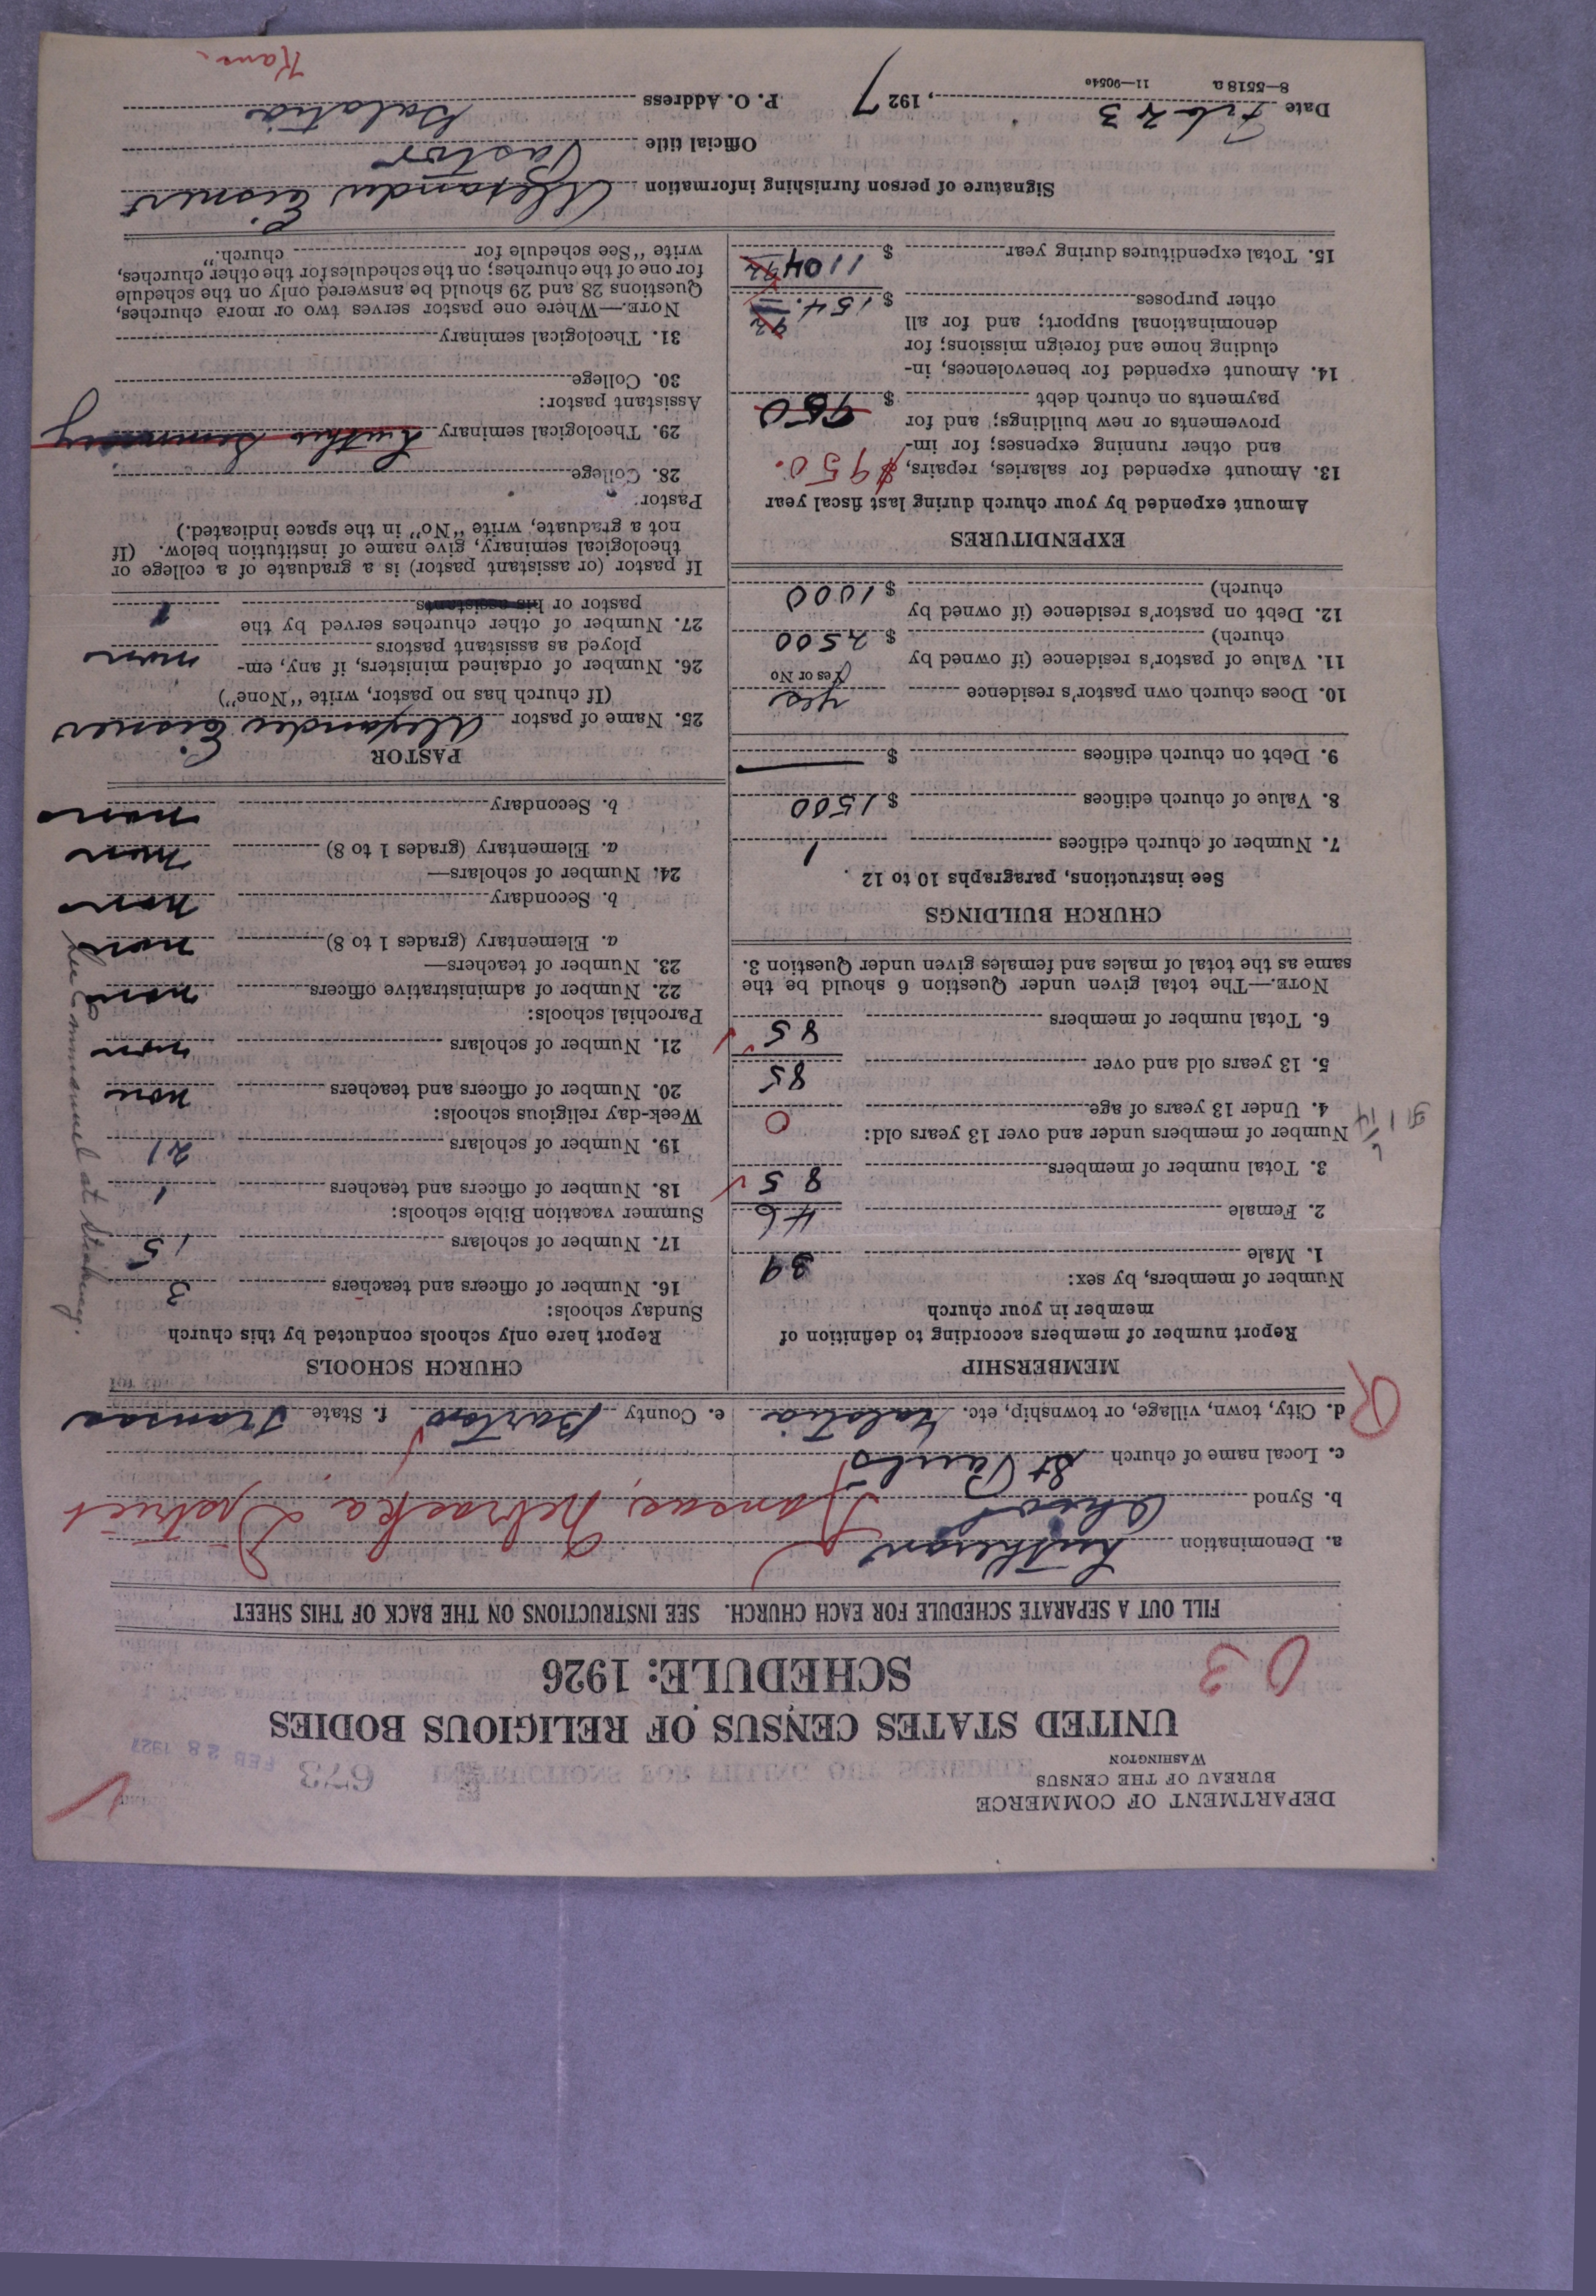 DEPARTMENT OF COMMERCE
BUREAU OF THE CENSUS
WASHINGTON
673
FEB 28 1927
UNITED STATES CENSUS OF RELIGIOUS BODIES
SCHEDULE: 1926
03
FILL OUT A SEPARATE SCHEDULE FOR EACH CHURCH. SEE INSTRUCTIONS ON THE BACK OF THIS SHEET
a. Denomination Lutheran
b. Synod Ohio Kansas, Nebraska District
c. Local name of church St Pauls
d. City, town, village, or township, etc. Galatia e. County Barton f. State Kansas
MEMBERSHIP
Report number of members according to definition of
member in your church
Number of members, by sex:
1. Male 39
2. Female 46
3. Total number of members 85
Number of members under and over 13 years old:
4. Under 13 years of age 0
5. 13 years old and over 85
6. Total number of members 85
NOTE.—The total given under Question 6 should be the
same as the total of males and females given under Question 3.
CHURCH BUILDINGS
See instructions, paragraphs 10 to 12
7. Number of church edifices 1
8. Value of church edifices $ 1500
9. Debt on church edifices $ —
10. Does church own pastor's residence yes
Yes or No
11. Value of pastor's residence (if owned by
church) $ 2500
12. Debt on pastor's residence (if owned by
church) $ 1000
EXPENDITURES
Amount expended by your church during last fiscal year
13. Amount expended for salaries, repairs, $950.
and other running expenses; for im-
provements or new buildings; and for
payments on church debt $ 950
14. Amount expended for benevolences, in-
cluding home and foreign missions; for
denominational support; and for all
other purposes $ 154.
15. Total expenditures during year $ 1104
CHURCH SCHOOLS
Report here only schools conducted by this church
Sunday schools:
16. Number of officers and teachers 3
17. Number of scholars 15
Summer vacation Bible schools:
18. Number of officers and teachers 1
19. Number of scholars 21
Week-day religious schools:
20. Number of officers and teachers none
21. Number of scholars none
Parochial schools:
22. Number of administrative officers none
23. Number of teachers—
a. Elementary (grades 1 to 8) none
b. Secondary none
24. Number of scholars—
a. Elementary (grades 1 to 8) none
b. Secondary none
See Emmanuel at Susank.
PASTOR
25. Name of pastor Alexander Eisner
(If church has no pastor, write "None")
26. Number of ordained ministers, if any, em-
ployed as assistant pastors none
27. Number of other churches served by the
pastor or his assistants 1
If pastor (or assistant pastor) is a graduate of a college or
theological seminary, give name of institution below. (If
not a graduate, write "No" in the space indicated.)
Pastor:
28. College
29. Theological seminary Luther Seminary
Assistant pastor:
30. College
31. Theological seminary
NOTE.—Where one pastor serves two or more churches,
Questions 28 and 29 should be answered only on the schedule
for one of the churches; on the schedules for the other churches,
write "See schedule for church."
Signature of person furnishing information Alexander Eisnert
Official title Pastor
Date Feb 23, 1927 P. O. Address Galatia
Kans.
8—5518a 11—9054o